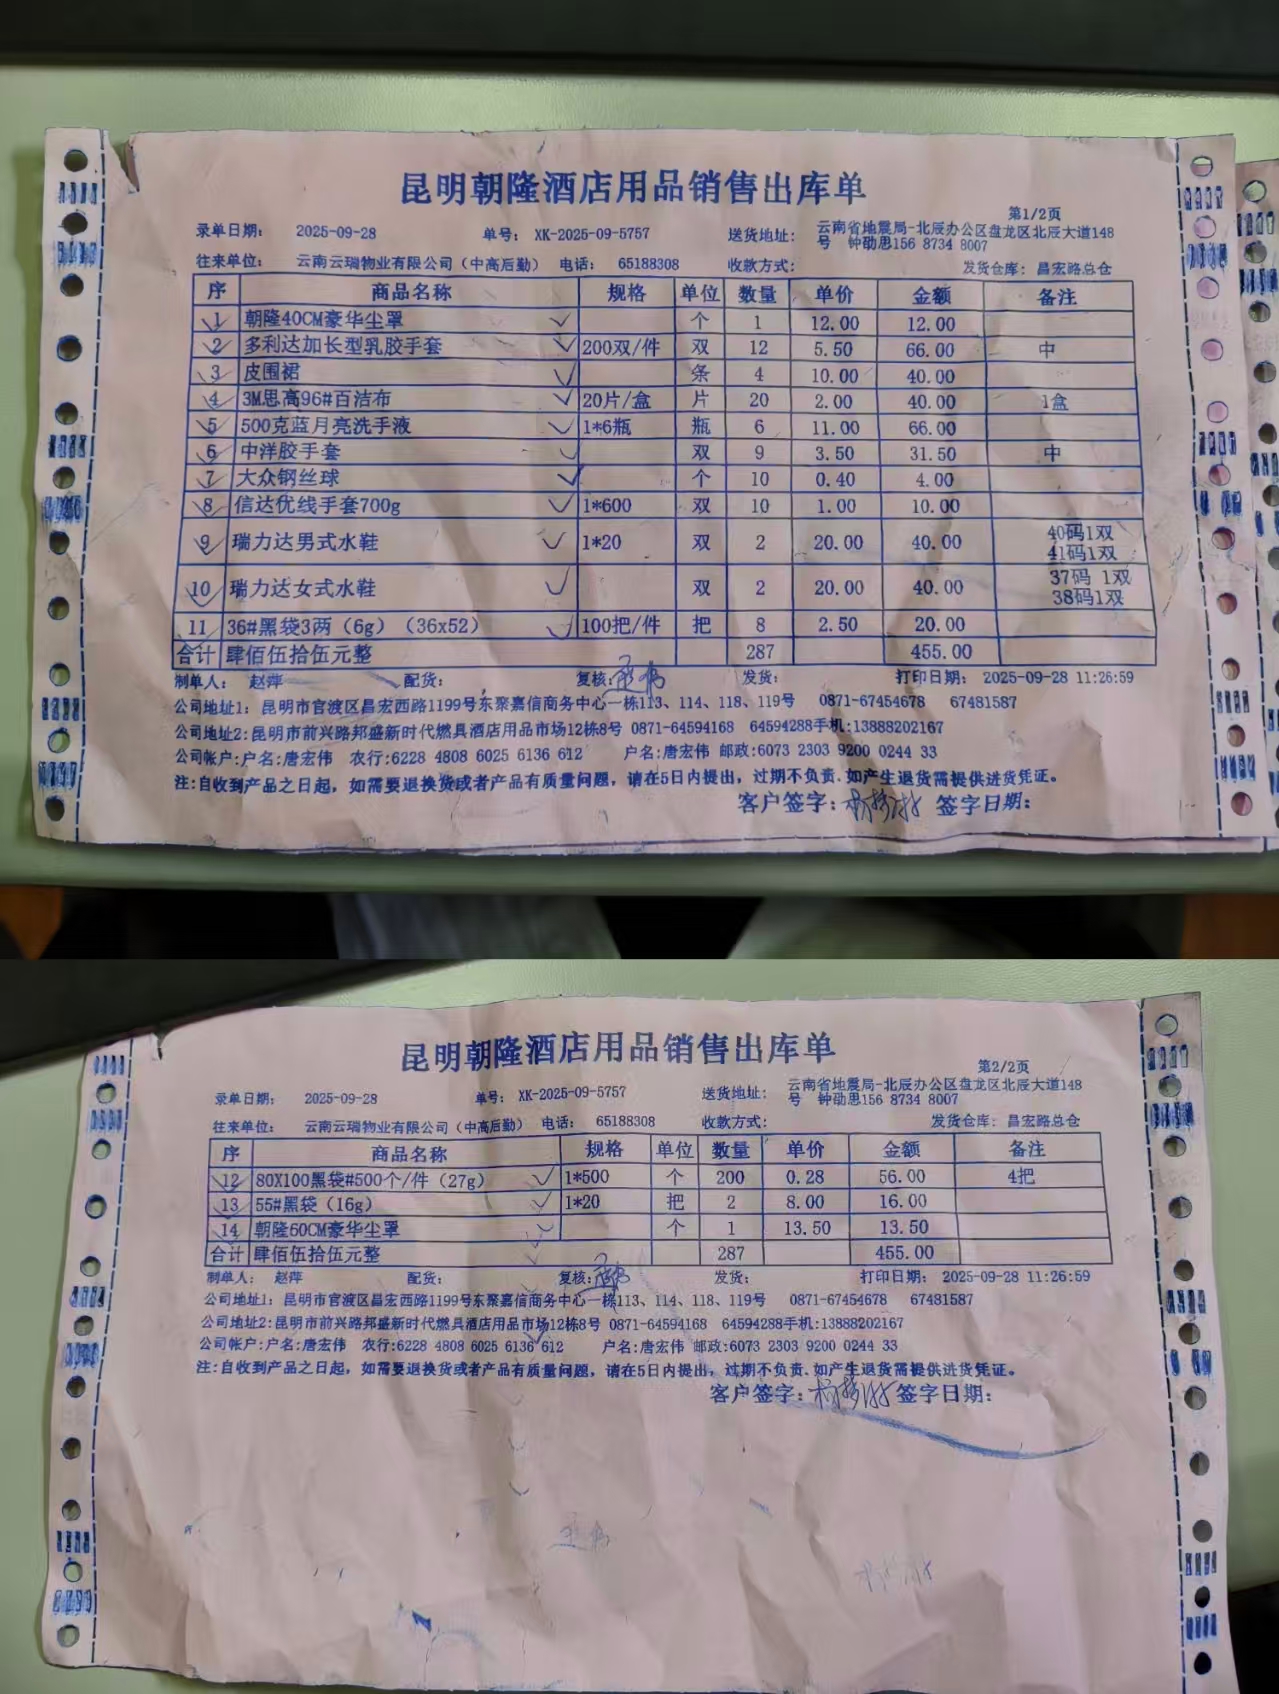 昆明朝隆酒店用品销售出库单
第1/2页
录单日期: 2025-09-28 单号: XK-2025-09-5757 送货地址: 云南省地震局-北辰办公区盘龙区北辰大道148
号 钟劭思156 8734 8007
往来单位: 云南云瑞物业有限公司（中高后勤） 电话: 65188308 收款方式: 发货仓库: 昌宏路总仓
序 商品名称 规格 单位 数量 单价 金额 备注
1 朝隆40CM豪华尘罩 个 1 12.00 12.00
2 多利达加长型乳胶手套 200双/件 双 12 5.50 66.00 中
3 皮围裙 条 4 10.00 40.00
4 3M思高96#百洁布 20片/盒 片 20 2.00 40.00 1盒
5 500克蓝月亮洗手液 1*6瓶 瓶 6 11.00 66.00
6 中洋胶手套 双 9 3.50 31.50 中
7 大众钢丝球 个 10 0.40 4.00
8 信达优线手套700g 1*600 双 10 1.00 10.00
9 瑞力达男式水鞋 1*20 双 2 20.00 40.00 40码1双
41码1双
10 瑞力达女式水鞋 双 2 20.00 40.00 37码 1双
38码1双
11 36#黑袋3两（6g）（36x52） 100把/件 把 8 2.50 20.00
合计 肆佰伍拾伍元整 287 455.00
制单人: 赵萍 配货: 复核: 发货: 打印日期: 2025-09-28 11:26:59
公司地址1: 昆明市官渡区昌宏西路1199号东聚嘉信商务中心一栋113、114、118、119号 0871-67454678 67481587
公司地址2:昆明市前兴路邦盛新时代燃具酒店用品市场12栋8号 0871-64594168 64594288手机:13888202167
公司帐户:户名:唐宏伟 农行:6228 4808 6025 6136 612 户名:唐宏伟 邮政:6073 2303 9200 0244 33
注:自收到产品之日起，如需要退换货或者产品有质量问题，请在5日内提出，过期不负责.如产生退货需提供进货凭证。
客户签字: 签字日期:
昆明朝隆酒店用品销售出库单
第2/2页
录单日期: 2025-09-28 单号: XK-2025-09-5757 送货地址: 云南省地震局-北辰办公区盘龙区北辰大道148
号 钟劭思156 8734 8007
往来单位: 云南云瑞物业有限公司（中高后勤） 电话: 65188308 收款方式: 发货仓库: 昌宏路总仓
序 商品名称 规格 单位 数量 单价 金额 备注
12 80X100黑袋#500个/件（27g） 1*500 个 200 0.28 56.00 4把
13 55#黑袋（16g） 1*20 把 2 8.00 16.00
14 朝隆60CM豪华尘罩 个 1 13.50 13.50
合计 肆佰伍拾伍元整 287 455.00
制单人: 赵萍 配货: 复核: 发货: 打印日期: 2025-09-28 11:26:59
公司地址1: 昆明市官渡区昌宏西路1199号东聚嘉信商务中心一栋113、114、118、119号 0871-67454678 67481587
公司地址2:昆明市前兴路邦盛新时代燃具酒店用品市场12栋8号 0871-64594168 64594288手机:13888202167
公司帐户:户名:唐宏伟 农行:6228 4808 6025 6136 612 户名:唐宏伟 邮政:6073 2303 9200 0244 33
注:自收到产品之日起，如需要退换货或者产品有质量问题，请在5日内提出，过期不负责.如产生退货需提供进货凭证。
客户签字: 签字日期: